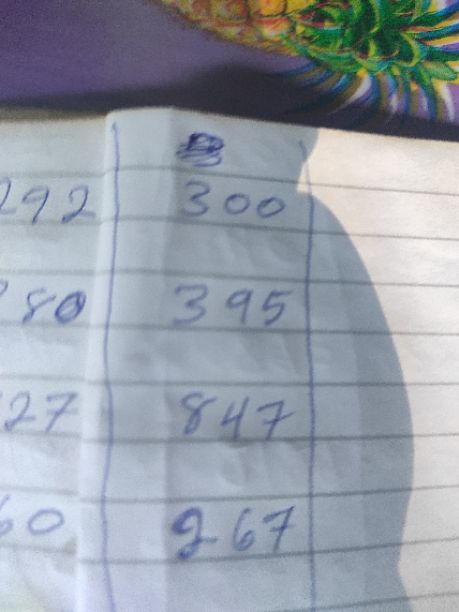 292 300
80 395
27 847
60 267